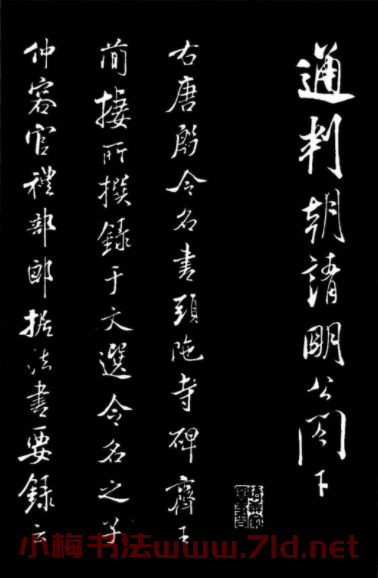 通判朝請明公閤下
右唐殷令名書頭陁寺碑齊王
簡棲所撰録于文選令名之子
仲容官禮部郎据法書要録云
小梅书法www.7ld.net